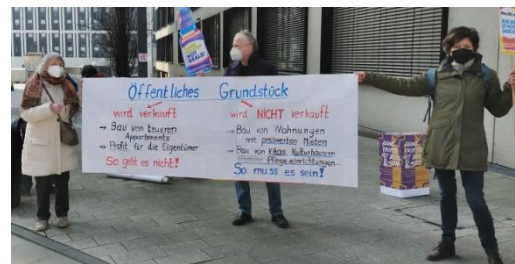 Öffentliches Grundstück
wird verkauft
→ Bau von teueren
Appartements
→ Profit für die Eigentümer
So geht es nicht!
wird NICHT verkauft
→ Bau von Wohnungen
mit preiswerten Mieten
→ Bau von Kitas, Kulturhäusern
Pflegeeinrichtungen
So muss es sein!